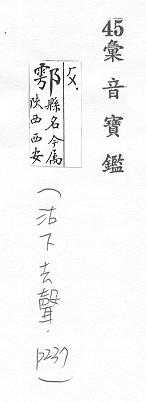 45彙音寶鑑
攵.
鄠 縣名今屬
鄠 陝西西安
(沽下去聲.
p237)